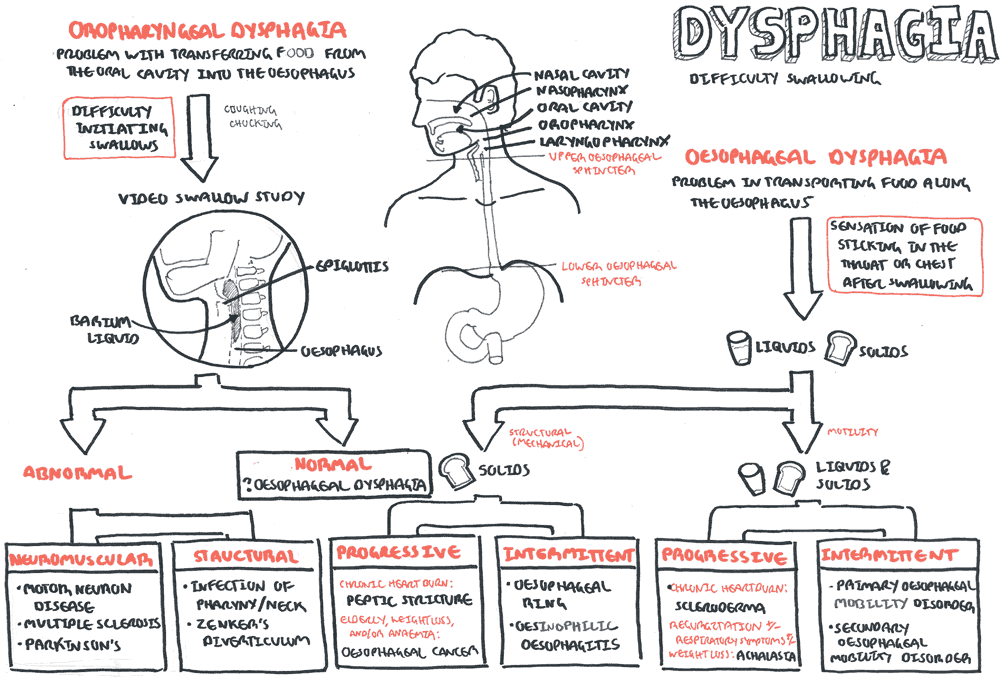 DYSPHAGIA
DIFFICULTY SWALLOWING
OROPHARYNGEAL DYSPHAGIA
PROBLEM WITH TRANSFERRING FOOD FROM
THE ORAL CAVITY INTO THE OESOPHAGUS
DIFFICULTY
INITIATING
SWALLOWS
COUGHING
CHOCKING
VIDEO SWALLOW STUDY
EPIGLOTTIS
BARIUM
LIQUID
OESOPHAGUS
NASAL CAVITY
NASOPHARYNX
ORAL CAVITY
OROPHARYNX
LARYNGOPHARYNX
UPPER OESOPHAGEAL
SPHINCTER
LOWER OESOPHAGEAL
SPHINCTER
OESOPHAGEAL DYSPHAGIA
PROBLEM IN TRANSPORTING FOOD ALONG
THE OESOPHAGUS
SENSATION OF FOOD
STICKING IN THE
THROAT OR CHEST
AFTER SWALLOWING
LIQUIDS
SOLIDS
ABNORMAL
NORMAL
? OESOPHAGEAL DYSPHAGIA
STRUCTURAL
(MECHANICAL)
SOLIDS
MOTILITY
LIQUIDS &
SOLIDS
NEUROMUSCULAR
• MOTOR NEURON
DISEASE
• MULTIPLE SCLEROSIS
• PARKINSON'S
STRUCTURAL
• INFECTION OF
PHARYNY/NECK
• ZENKER'S
DIVERTICULUM
PROGRESSIVE
CHRONIC HEARTBURN:
PEPTIC STRICTURE
ELDERLY, WEIGHTLOSS,
AND/OR ANAEMIA:
OESOPHAGEAL CANCER
INTERMITTENT
• OESOPHAGEAL
RING
• OESINOPHILIC
OESOPHAGITIS
PROGRESSIVE
• CHRONIC HEARTBURN:
SCLERODERMA
REGURGITATION &/-
RESPIRATORY SYMPTOMS &/
WEIGHTLOSS: ACHALASIA
INTERMITTENT
- PRIMARY OESOPHAGEAL
MOBILITY DISORDER
• SECONDARY
OESOPHAGEAL
MOBILITY DISORDER